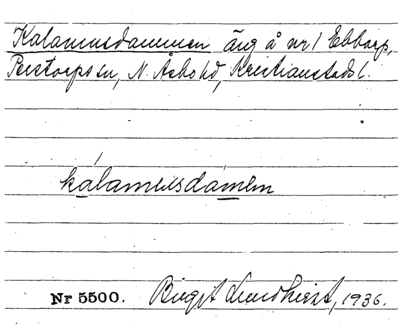 Kalamusdammen äng å nr 1 Ebbarp,
Perstorps sn, N. Åsbo hd, Kristianstads l.
kálamusdámen
Nr 5500. Birgit Lundkvist, 1936.